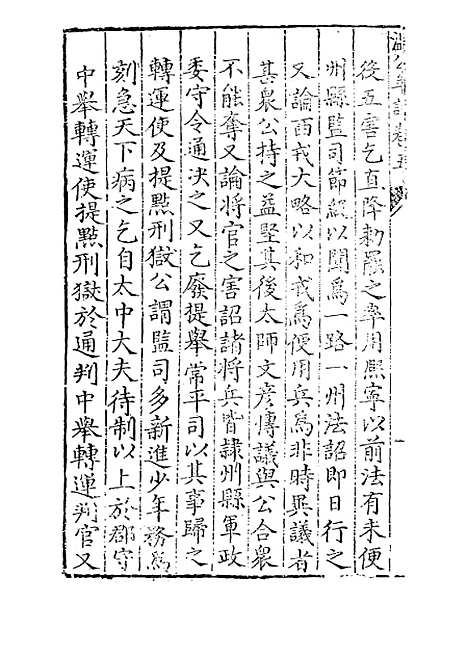 後五害乞直降勅罷之率用熙寧以前法有未便
州縣監司節級以聞爲一路一州法詔即日行之
又論西戎大略以和戎爲便用兵爲非時異議者
甚衆公持之益堅其後太師文彦博議與公合衆
不能奪又論將官之害詔諸將兵皆隷州縣軍政
委守令通决之又乞廢提舉常平司以其事歸之
轉運使及提點刑獄公謂監司多新進少年務爲
刻急天下病之乞自太中大夫待制以上於郡守
中舉轉運使提點刑獄於通判中舉轉運判官又